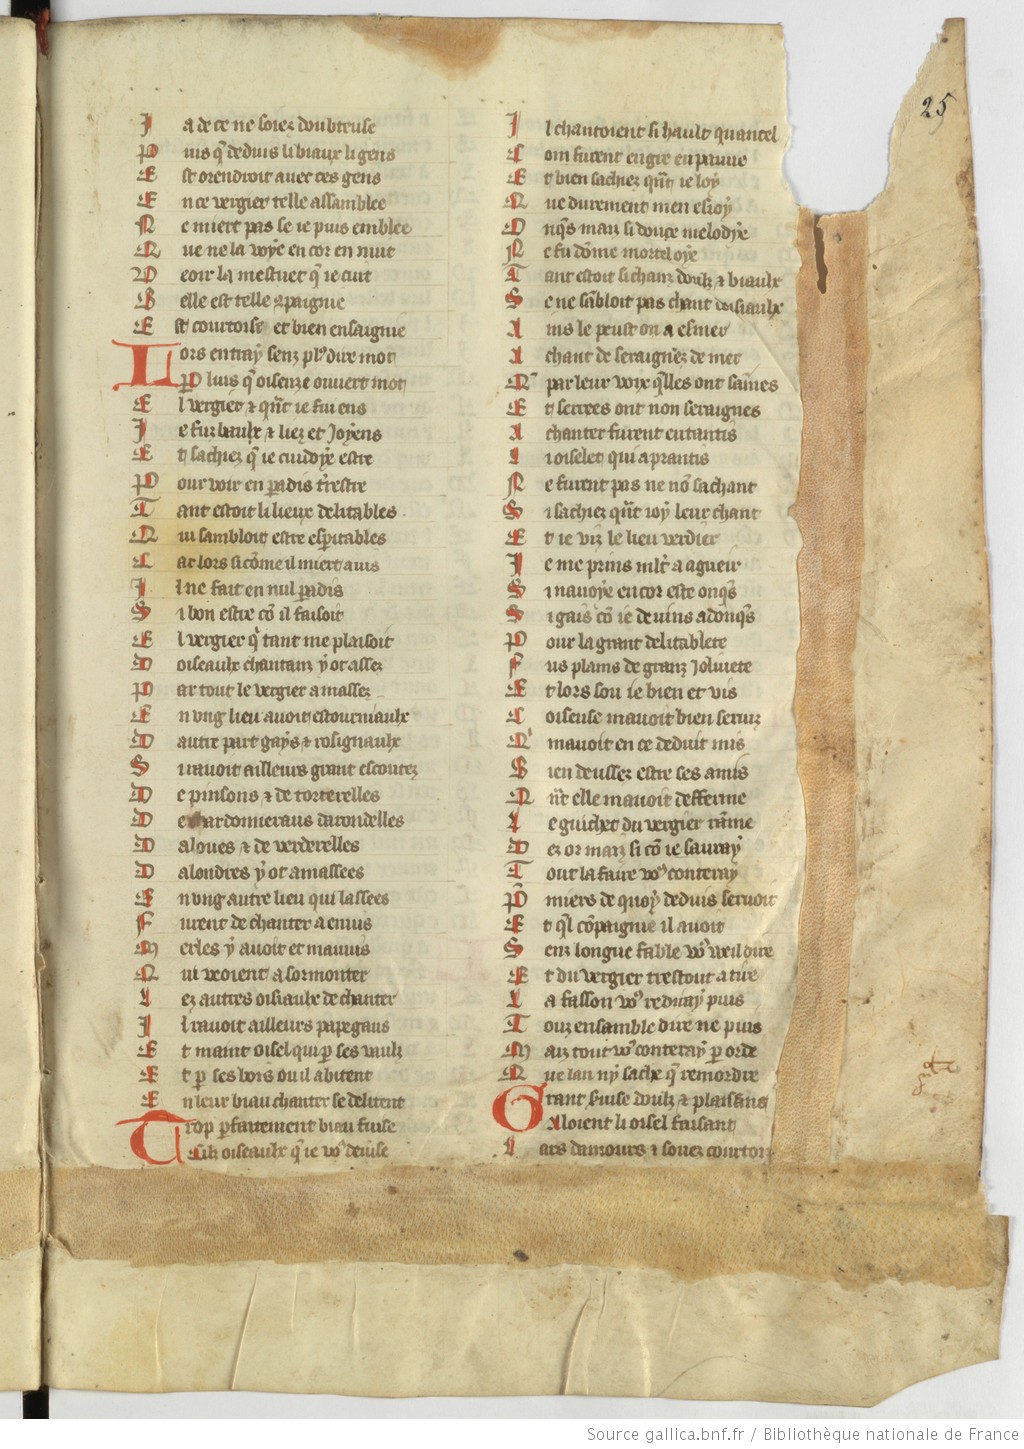 25
J a de ce ne soiez doubteuse
P uis q̃ deduis li biaux li gens
E st orendroit auec ces gens
E n ce vergier telle assamblee
N e miert pas se ie puis emblee
Q ue ne la voỹe encor en nuit
V eoir la mestuet q̃ ie cuit
B elle est telle
E st courtoise et bien ensaignie
L ors entraỹ senz pl9 dire mot
P luis q̃ oiseuze ouuert mot
E l vergier & qñt ie fui ens
J e fuz baulx & liez et Joỹens
E t sachiez q̃ ie cuidoỹe estre
P our voir en padis trestre
T ant estoit li lieux delitables
Q ui sambloit estre espitables
C ar lors si cõme il miert auis
J l ne fait en nul padis
S i bon estre cõ il faisoit
E l vergier q̃ tant me plaisoit
D oiseaulx chantanz ỹ ot assez
P ar tout le vergier amassez
E n vng lieu auoit estourniaulx
D autre part gaỹs & rosignaulx
S i rauoit ailleurs grant escoutez
D e pinsons & de torterelles
D e chardonneraus darondelles
D aloues & de verderelles
D alondres ỹ ot amassees
E n vng autre lieu qui lassees
F urent de chanter a enuis
M erles ỹ auoit et mauuis
Q ui veoient a sormonter
L ez autres oisiaulx de chanter
J l rauoit ailleurs papegaus
E t maint oisel qui p ses vaulx
E t p ses bois ou il abitent
E n leur biau chanter se delitent
T rop pfaitement biau fuise
C ilz oiseaulx q̃ ie vo9 deuise
J l chantoient si hault quantel
C om furent en gre en pauue
E t bien sachiez qñt ie loỹ
Q ue durement men esioỹ
O nq̃s maiz si douce melodỹe
N e fu dõme mortel oỹe
T ant estoit si chanz doulz & biaulx
S e ne sẽbloit pas chant doisiaulx
A ins le peust on aesmer
A chant de seraignez de mer
Q par leur voix q̃lles ont saines
E t serrees ont non seraignes
A chanter furent ententis
L i oiselet qui aprantis
N e furent pas ne nõ sachant
S i sachiez qñt ioỹ leur chant
E t ie viz le lieu verdier
J e me prins mlt a agueir
S i nauoỹe encor este onq̃s
S i gais cõ ie deuins adonq̃s
P our la grant delitablete
F us plains de granz Joliuete
E t lors sou ie bien et vis
C oiseuse mauoit bien seruiz
Q mauoit en ce deduit mis
B ien deusse estre ses amis
Q ñt elle mauoit defferme
L e guichet du vergier rãme
D ez or maiz si cõ ie sauraỹ
T out la faire vo9 conteraỹ
P miers de quoỹ deduis seruoit
E t q̃l cõpaignie il auoit
S enz longue fable vo9 weil dire
E t du vergier trestout a tire
L a fasson vo9 rediraỹ puis
T ouz ensamble dire ne puis
M aiz tout vo9 conteraỹ p orde
Q ue lan nỹ sache q̃ remordre
G rant seruise doulz & plaisans
A loient li oisel faisant
L ais damours & sonez courtois